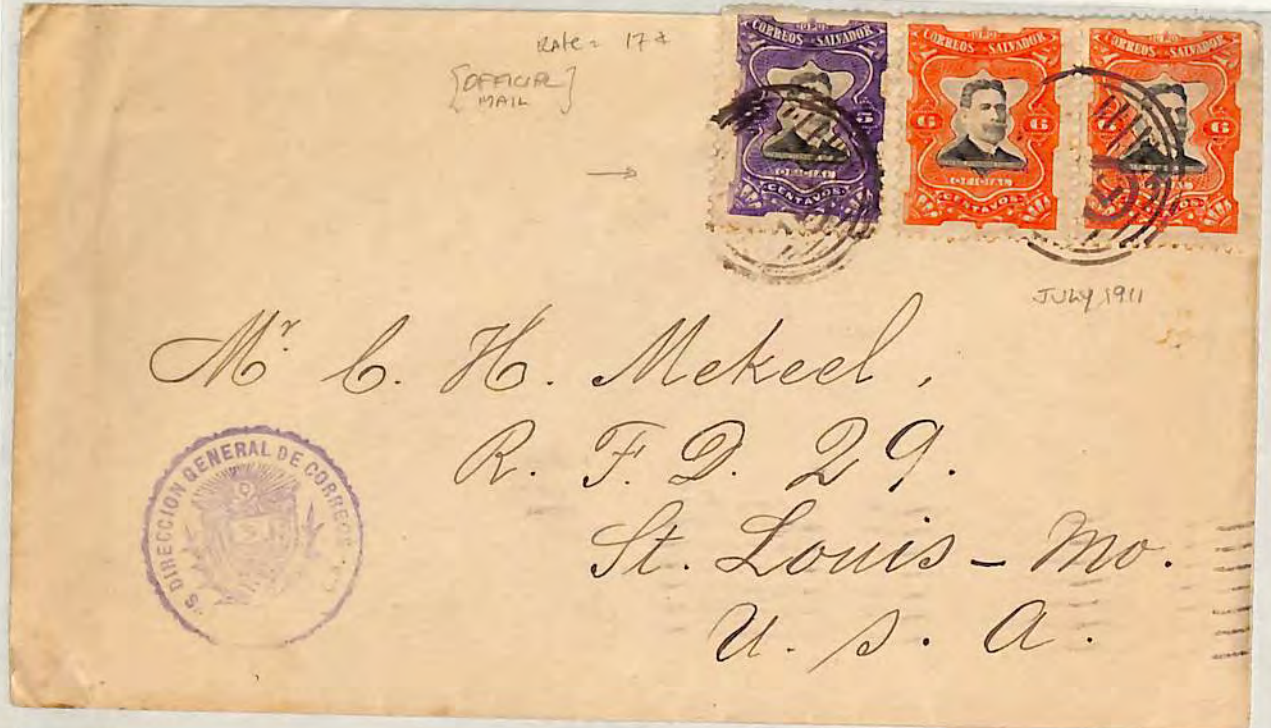 RATE = 17¢
[OFFICIAL]
MAIL
CORREOS SALVADOR
5
OFICIAL
CENTAVOS
CORREOS SALVADOR
6 6
OFICIAL
CENTAVOS
CORREOS SALVADOR
6 6
CENTAVOS
JULY 1911
Mr. C. H. Mekeel,
R. F. D. 29.
St. Louis - Mo.
U. S. A.
DIRECCION GENERAL DE CORREOS